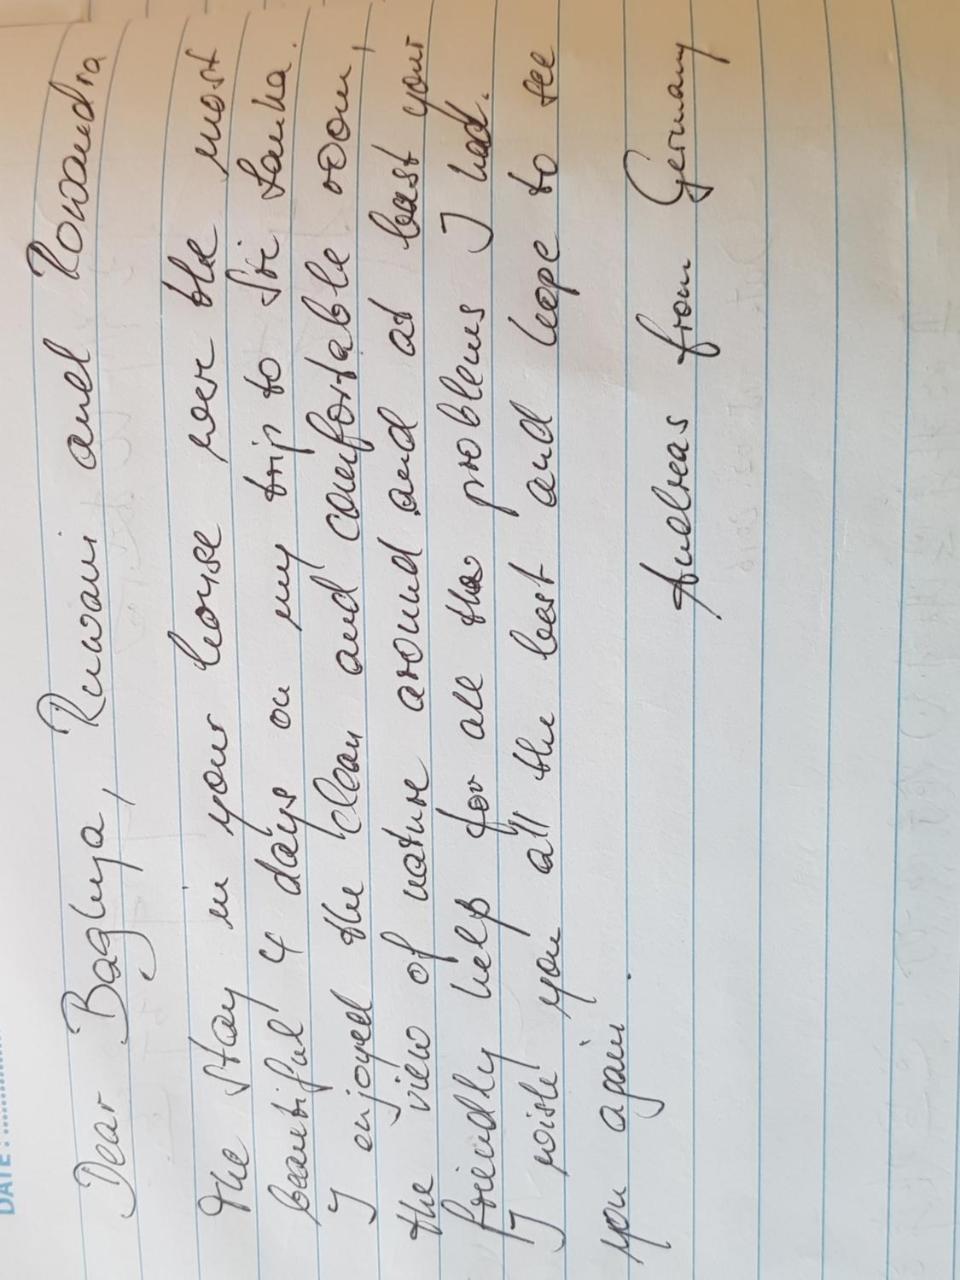 DATE : ............
Dear Baghya, Ruwani and Romandra
The stay in your house were the most
beautiful 4 days on my trip to Sri Lanka.
I enjoyed the clean and comfortable room,
the view of nature around and at least your
friendly help for all the problems I had.
I wish you all the best and hope to see
you again.
Andreas from Germany